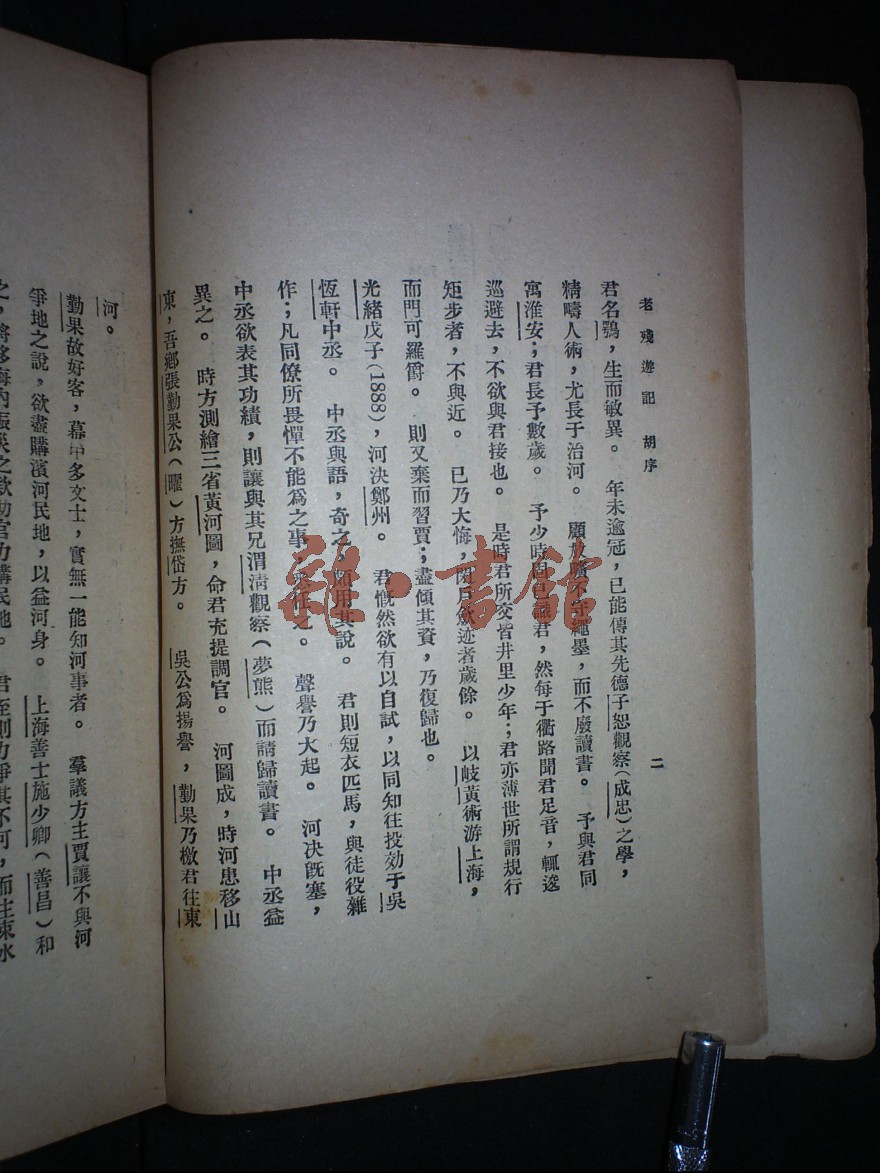 老殘遊記　胡序
二
君名鶚，生而敏異。　年未逾冠，已能傳其先德子恕觀察（成忠）之學，
精疇人術，尤長于治河。　顧放曠不守繩墨，而不廢讀書。　予與君同
寓淮安；君長予數歲。　予少時固已識君，然每于衢路聞君足音，輒逡
巡避去，不欲與君接也。　是時君所交皆井里少年；君亦薄世所謂規行
矩步者，不與近。　已乃大悔，閉戶斂迹者歲餘。　以岐黃術游上海，
而門可羅爵。　則又棄而習賈；盡傾其資，乃復歸也。
光緒戊子（1888），河決鄭州。　君慨然欲有以自試，以同知往投効于吳
恆軒中丞。　中丞與語，奇之，頗用其說。　君則短衣匹馬，與徒役雜
作；凡同僚所畏憚不能為之事，悉任之。　聲譽乃大起。　河決旣塞，
中丞欲表其功績，則讓與其兄渭淸觀察（夢熊）而請歸讀書。　中丞益
異之。　時方測繪三省黃河圖，命君充提調官。　河圖成，時河患移山
東，吾鄉張勤果公（曜）方撫岱方。　吳公為揚譽，勤果乃檄君往東
河。
勤果故好客，幕中多文士，實無一能知河事者。　羣議方主賈讓不與河
爭地之說，欲盡購濱河民地，以益河身。　上海善士施少卿（善昌）和
之，將移海內振災之款助官力購民地。　君至則力爭其不可，而主束水
雜·書館